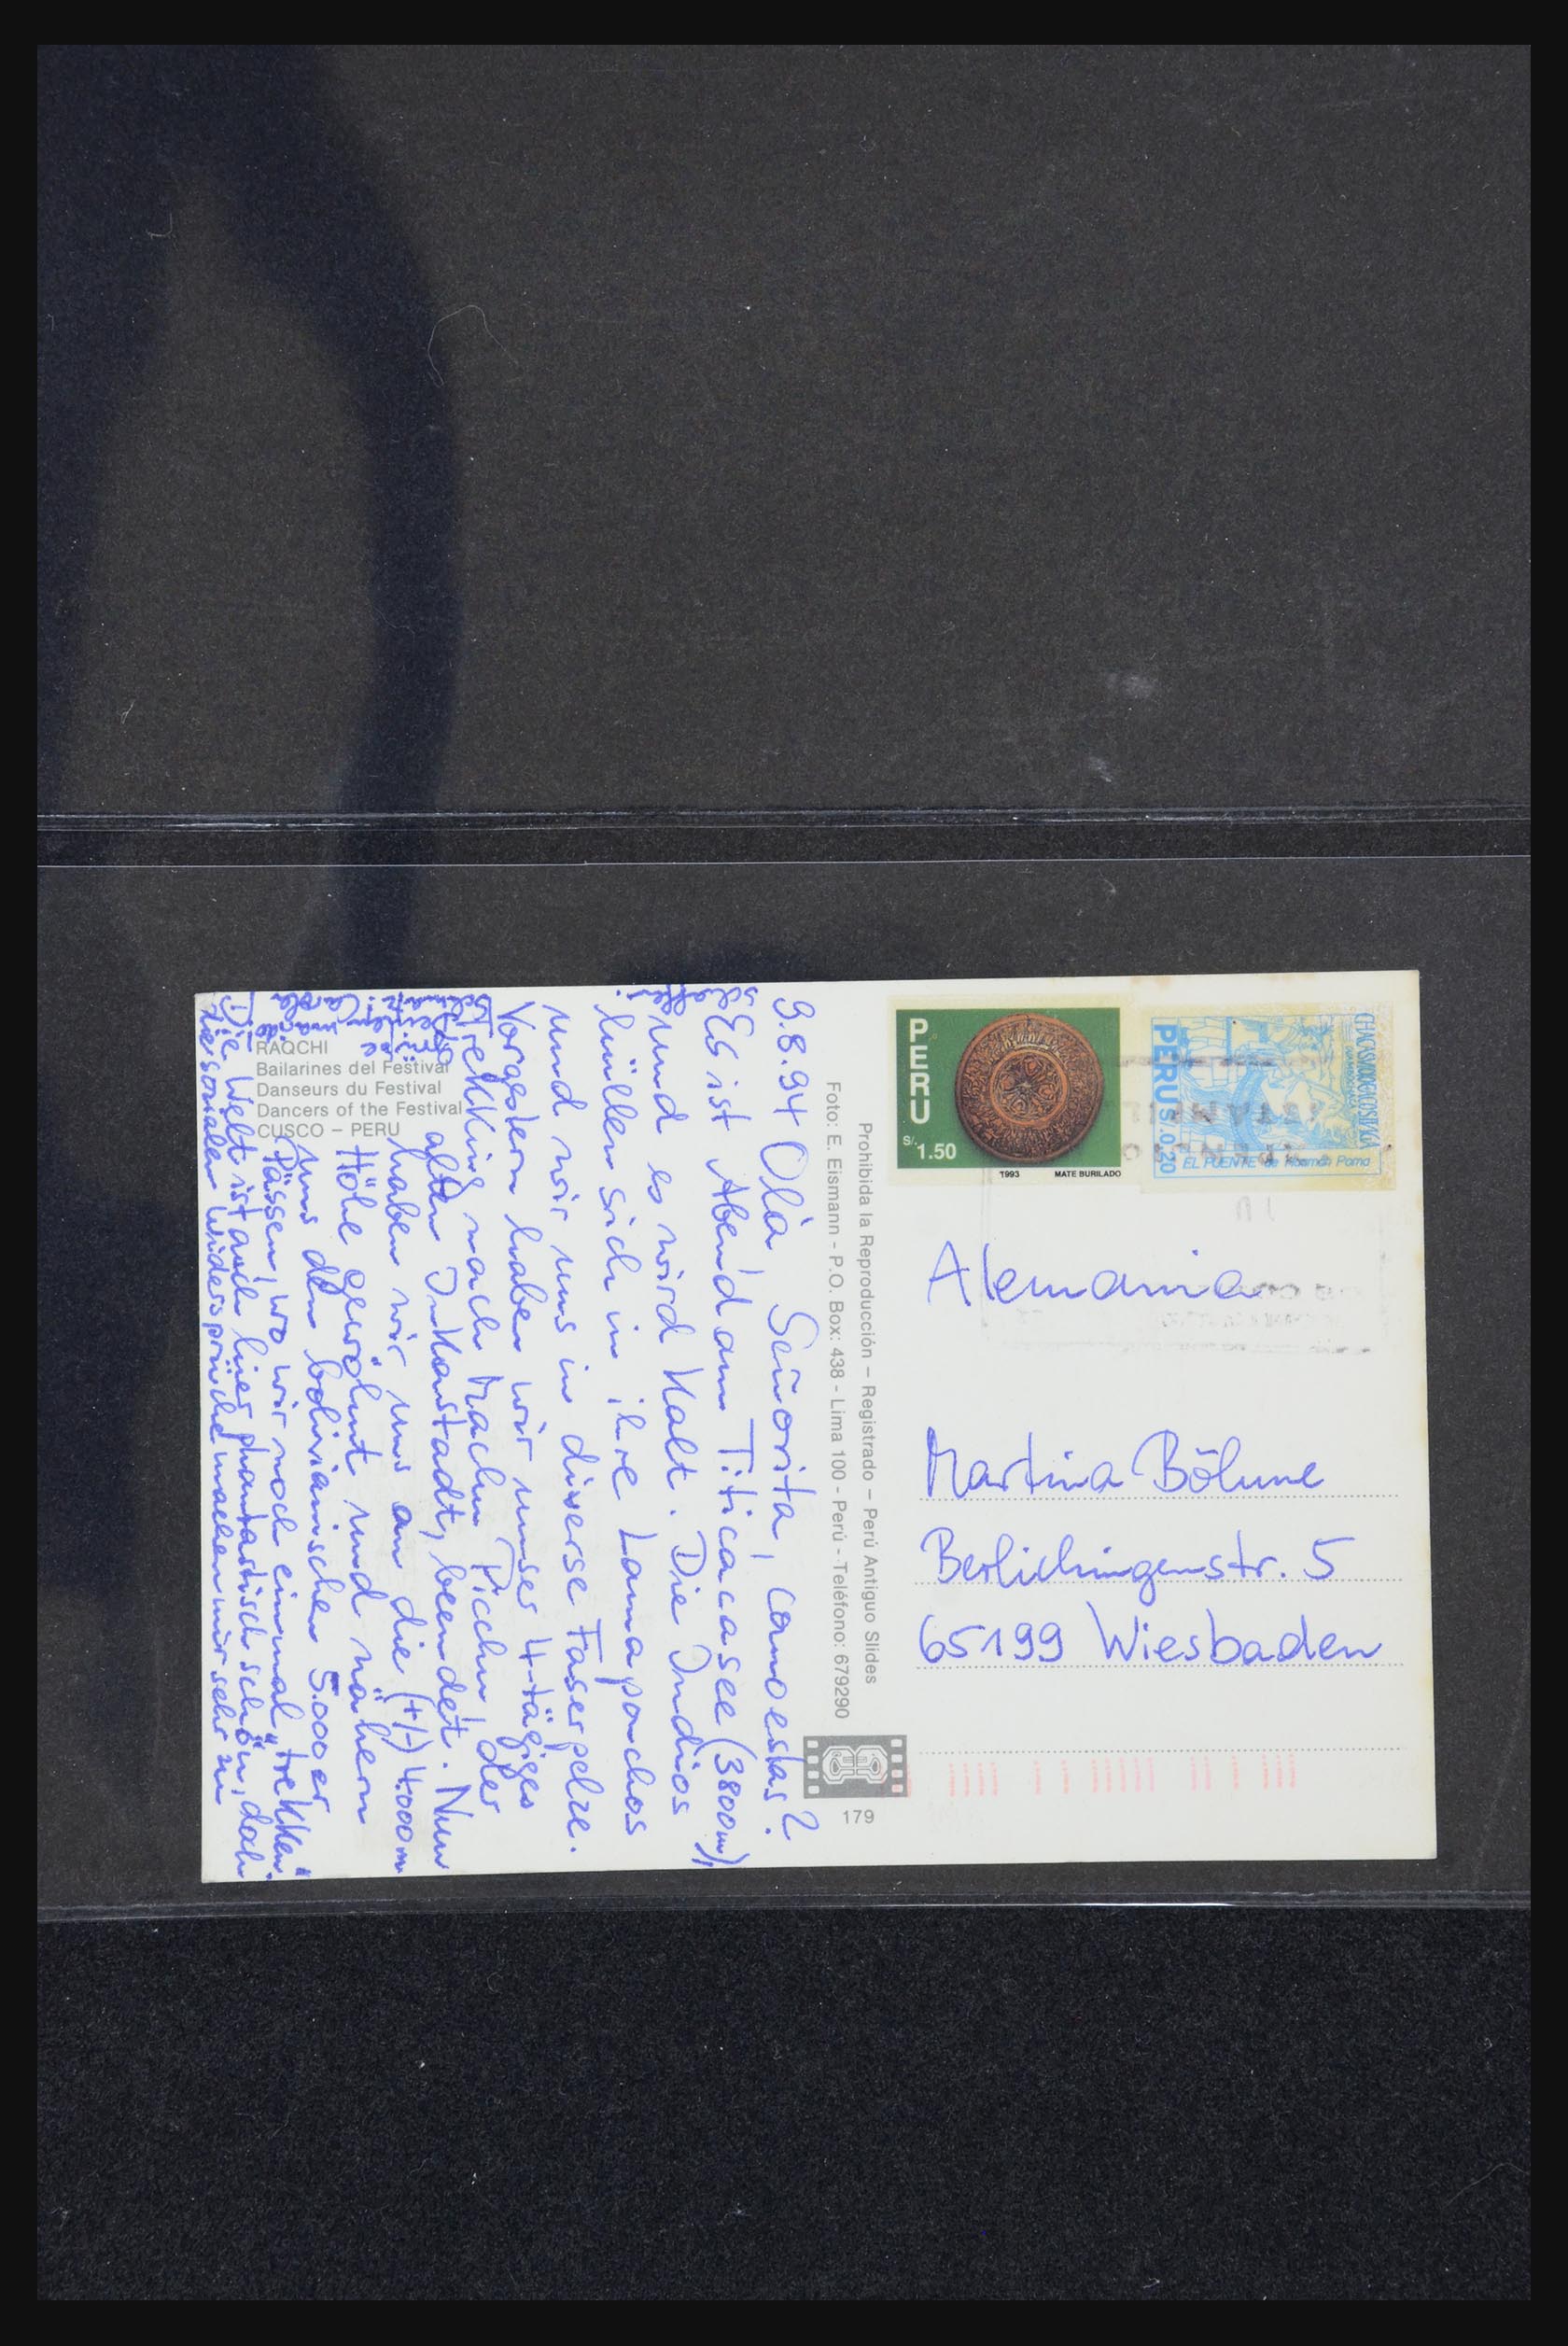 9.8.94 Olà Señorita, comoestas?
Es ist Abend am Titicacasee (3800m),
und es wird kalt. Die Indios
hüllen sich in ihre Lamaponchos
und wir uns in diverse Faserpelze.
Vorgestern haben wir unser 4-tägiges
Trekking nach Machu Picchu, der
alten Inkastadt, beendet. Nun
haben wir uns an die (+/-) 4.000m
Höhe gewöhnt und nähern
uns den bolivianischen 5.000er
Pässen, wo wir noch einmal "trekken".
Die Welt ist auch hier phantastisch schön, doch
die sozialen Widersprüche machen mir sehr zu
schaffen!
Carola
RAQCHI
Bailarines del Festival
Danseurs du Festival
Dancers of the Festival
CUSCO – PERU
Foto: E. Eismann - P.O. Box: 438 - Lima 100 - Perú - Teléfono: 679290
Prohibida la Reproducción – Registrado – Perú Antiguo Slides
179
PERU
S/. 1.50
1993 MATE BURILADO
PERU S/.0.20
EL PUENTE de Huamán Poma
Alemania
Martina Böhme
Berlichingenstr. 5
65199 Wiesbaden